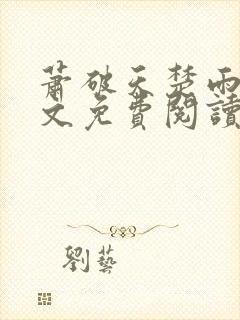 蕭破天楚雨
文免費閱讀
劉藝